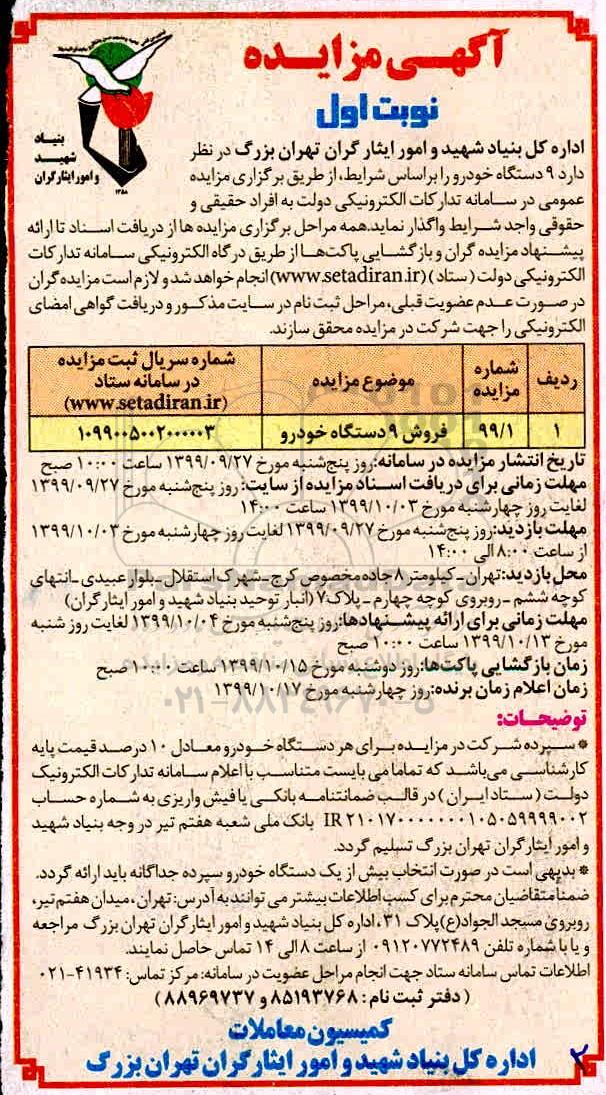 آگهی مزایده
نوبت اول
بنیاد
شهید
و امور ایثارگران
۱۳۵۸
اداره کل بنیاد شهید و امور ایثارگران تهران بزرگ در نظر
دارد ۹ دستگاه خودرو را براساس شرایط، از طریق برگزاری مزایده
عمومی در سامانه تدارکات الکترونیکی دولت به افراد حقیقی و
حقوقی واجد شرایط واگذار نماید. همه مراحل برگزاری مزایده ها از دریافت اسناد تا ارائه
پیشنهاد مزایده گران و بازگشایی پاکت‌ها از طریق درگاه الکترونیکی سامانه تدارکات
الکترونیکی دولت (ستاد) (www.setadiran.ir) انجام خواهد شد و لازم است مزایده گران
در صورت عدم عضویت قبلی، مراحل ثبت نام در سایت مذکور و دریافت گواهی امضای
الکترونیکی را جهت شرکت در مزایده محقق سازند.
ردیف | شماره مزایده | موضوع مزایده | شماره سریال ثبت مزایده در سامانه ستاد (www.setadiran.ir)
۱ | ۹۹/۱ | فروش ۹ دستگاه خودرو | ۱۰۹۹۰۰۵۰۰۲۰۰۰۰۰۳
تاریخ انتشار مزایده در سامانه: روز پنج‌شنبه مورخ ۱۳۹۹/۰۹/۲۷ ساعت ۱۰:۰۰ صبح
مهلت زمانی برای دریافت اسناد مزایده از سایت: روز پنج‌شنبه مورخ ۱۳۹۹/۰۹/۲۷
لغایت روز چهارشنبه مورخ ۱۳۹۹/۱۰/۰۳ ساعت ۱۴:۰۰
مهلت بازدید: روز پنج‌شنبه مورخ ۱۳۹۹/۰۹/۲۷ لغایت روز چهارشنبه مورخ ۱۳۹۹/۱۰/۰۳
از ساعت ۸:۰۰ الی ۱۴:۰۰
محل بازدید: تهران - کیلومتر ۸ جاده مخصوص کرج - شهرک استقلال - بلوار عبیدی - انتهای
کوچه ششم - روبروی کوچه چهارم - پلاک ۷ (انبار توحید بنیاد شهید و امور ایثارگران)
مهلت زمانی برای ارائه پیشنهادها: روز پنج‌شنبه مورخ ۱۳۹۹/۱۰/۰۴ لغایت روز شنبه
مورخ ۱۳۹۹/۱۰/۱۳ ساعت ۱۰:۰۰ صبح
زمان بازگشایی پاکت‌ها: روز دوشنبه مورخ ۱۳۹۹/۱۰/۱۵ ساعت ۱۰:۰۰ صبح
زمان اعلام زمان برنده: روز چهارشنبه مورخ ۱۳۹۹/۱۰/۱۷
۰۲۱-۸۸۳۴۹۶۷۰-۵
توضیحات:
* سپرده شرکت در مزایده برای هر دستگاه خودرو معادل ۱۰ درصد قیمت پایه
کارشناسی می‌باشد که تماما می بایست متناسب با اعلام سامانه تدارکات الکترونیک
دولت (ستاد ایران) در قالب ضمانتنامه بانکی یا فیش واریزی به شماره حساب
IR ۲۱۰۱۷۰۰۰۰۰۰۰۰۱۰۵۰۵۹۹۹۹۰۰۲ بانک ملی شعبه هفتم تیر در وجه بنیاد شهید
و امور ایثارگران تهران بزرگ تسلیم گردد.
* بدیهی است در صورت انتخاب بیش از یک دستگاه خودرو سپرده جداگانه باید ارائه گردد.
ضمنا متقاضیان محترم برای کسب اطلاعات بیشتر می توانند به آدرس: تهران، میدان هفتم تیر،
روبروی مسجد الجواد(ع) پلاک ۳۱، اداره کل بنیاد شهید و امور ایثارگران تهران بزرگ مراجعه
و یا با شماره تلفن ۰۹۱۲۰۷۷۲۴۸۹ از ساعت ۸ الی ۱۴ تماس حاصل نمایند.
اطلاعات تماس سامانه ستاد جهت انجام مراحل عضویت در سامانه: مرکز تماس: ۴۱۹۳۴-۰۲۱
(دفتر ثبت نام: ۸۵۱۹۳۷۶۸ و ۸۸۹۶۹۷۳۷)
کمیسیون معاملات
اداره کل بنیاد شهید و امور ایثارگران تهران بزرگ